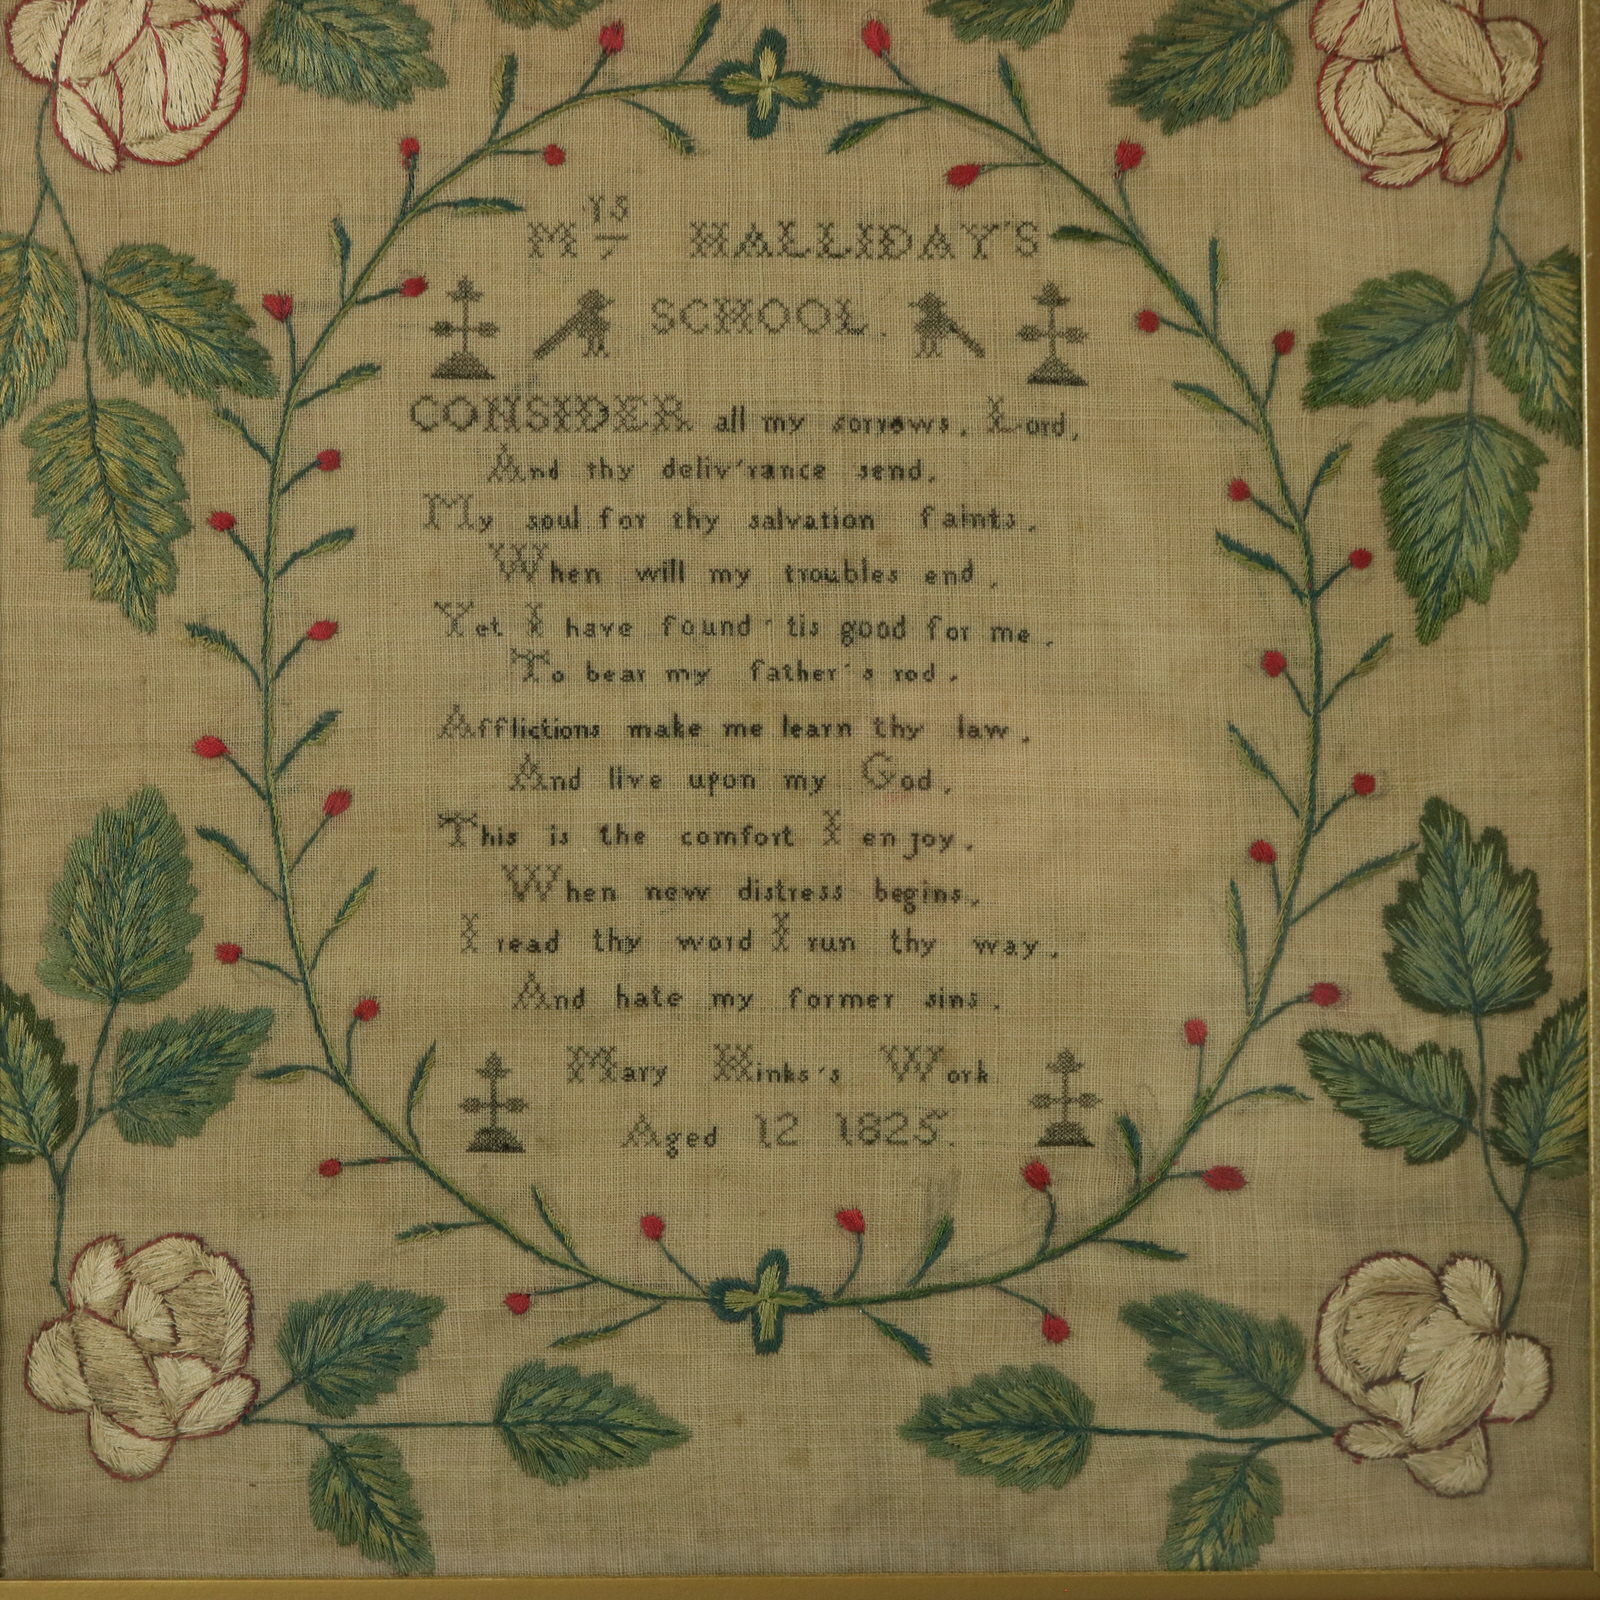 Mrs HALLIDAY'S
SCHOOL.
CONSIDER all my sorrows, Lord,
And thy deliv'rance send,
My soul for thy salvation faints,
When will my troubles end,
Yet I have found 'tis good for me,
To bear my father's rod,
Afflictions make me learn thy law,
And live upon my God,
This is the comfort I enjoy,
When new distress begins,
I read thy word I run thy way,
And hate my former sins,
Mary Hinks's Work
Aged 12 1825.